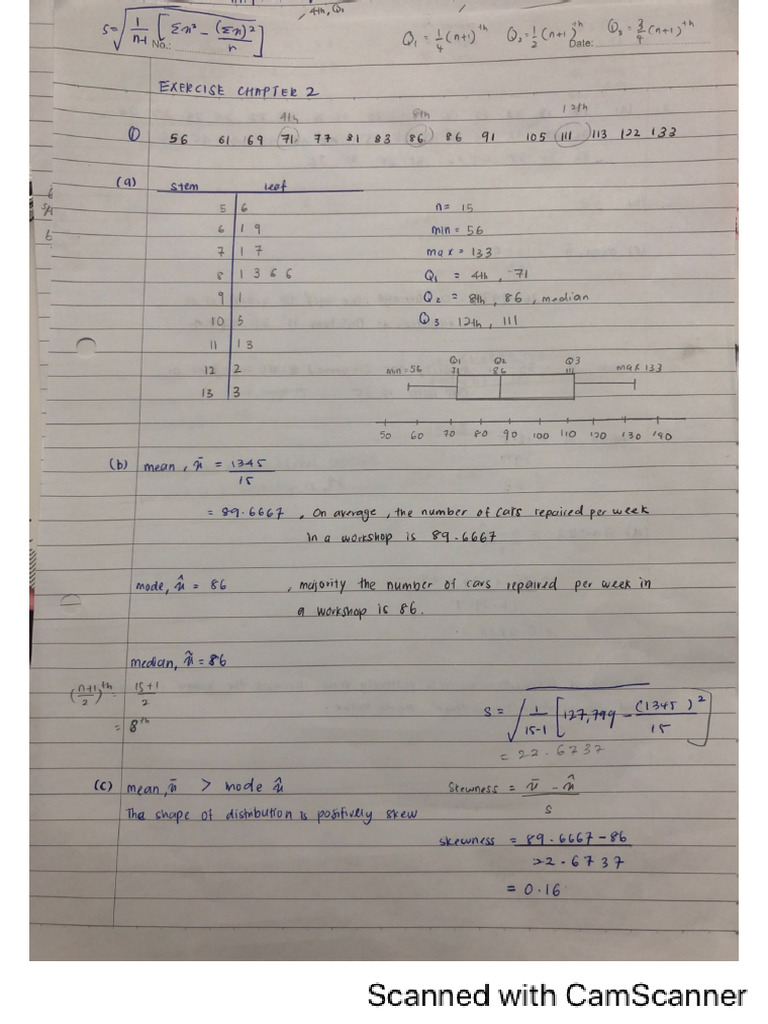 4th, Q₁
S = √ 1/n-1 [ Σx² - (Σx)²/n ]
Q₁ = 1/4 (n+1)ᵗʰ Q₂ = 1/2 (n+1)ᵗʰ Q₃ = 3/4 (n+1)ᵗʰ
No.: Date:
EXERCISE CHAPTER 2
4th 8th 12th
① 56 61 69 71 77 81 83 86 86 91 105 111 113 122 133
(a) Stem Leaf
5 | 6 n = 15
6 | 1 9 min = 56
7 | 1 7 max = 133
8 | 1 3 6 6 Q₁ = 4th, 71
9 | 1 Q₂ = 8th, 86, median
10 | 5 Q₃ 12th, 111
11 | 1 3
12 | 2
13 | 3
Q1 Q2 Q3
min = 56 71 86 111 max 133
50 60 70 80 90 100 110 120 130 140
(b) mean, x̄ = 1345/15
= 89.6667, On average, the number of cars repaired per week
in a workshop is 89.6667
mode, x̂ = 86, majority the number of cars repaired per week in
a workshop is 86.
median, x̃ = 86
(n+1/2)ᵗʰ = 15+1/2
= 8ᵗʰ
S = √ 1/15-1 [127,799 - (1345)²/15]
= 22.6737
(c) mean, x̄ > mode x̂
The shape of distribution is positively skew
Skewness = x̄ - x̂ / S
skewness = 89.6667-86 / 22.6737
= 0.16
Scanned with CamScanner